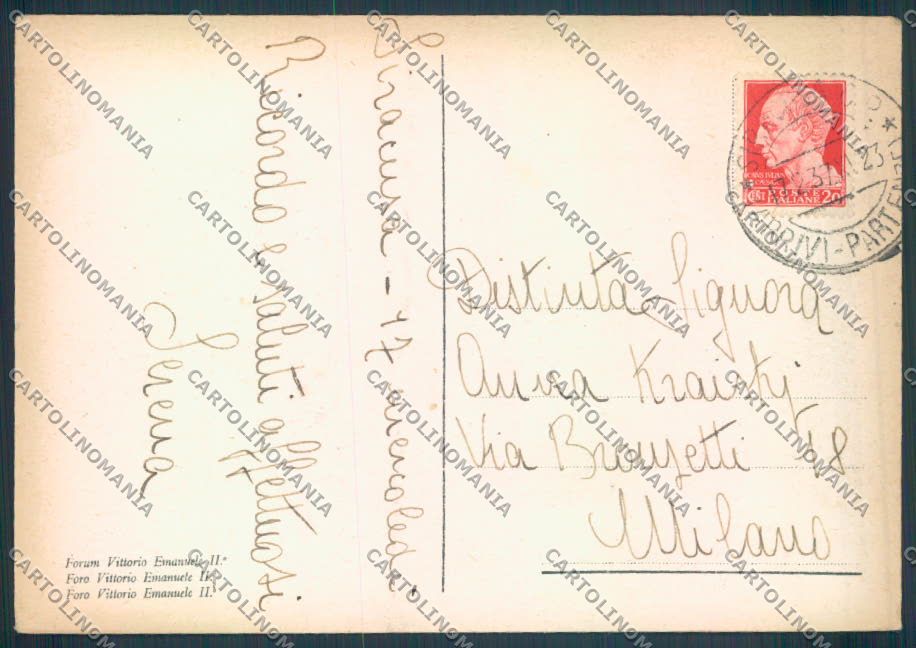 Siracusa - 17 mercoledì.
Ricordo e saluti affettuosi
Serena
Forum Vittorio Emanuele II.º
Foro Vittorio Emanuele II.
Foro Vittorio Emanuele II.
CENT POSTE 20
ITALIANE
ARRIVI-PARTEN
Distinta Signora
Anna Kraisky
Via Bronzetti 48
Milano
CARTOLINOMANIA